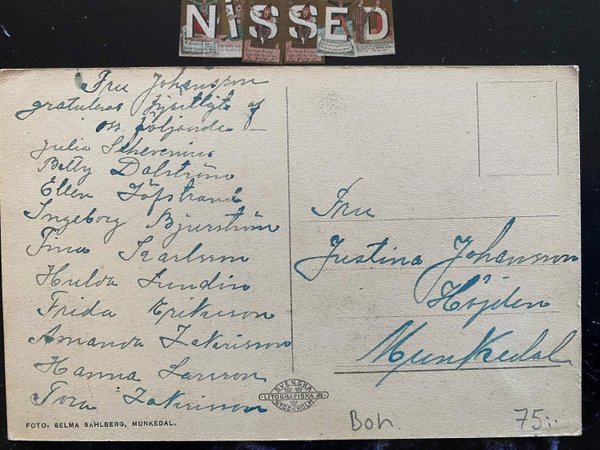 NiSSED
Fru Johansson
gratuleras hjertligt af
oss följande
Julia Schevenius
Betty Dalström
Ellen Löfstrand
Ingeborg Bjurström
Tina Karlsson
Hulda Lundin
Frida Erikuson
Amanda Zakrisson
Hanna Larsson
Tora Zakrisson
FOTO. SELMA SAHLBERG, MUNKEDAL.
SVENSKA
LITOGRAFISKA AB.
STOCKHOLM
Fru
Justina Johansson
Höjden
Munkedal
Boh.
75:-